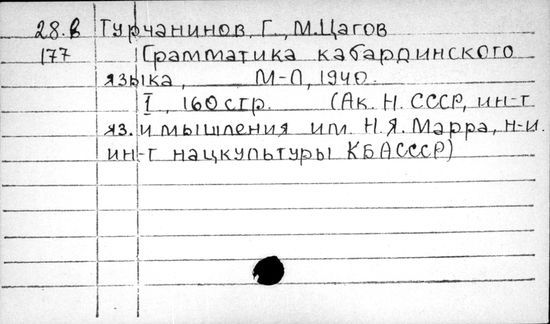 28.в Турчанинов, Г., М.Цагов
177 Грамматика кабардинского
языка, М-Л, 1940.
I, 160стр. (Ак. Н. СССР, ин-т
яз. и мышления им. Н.Я. Марра, н-и.
ин-т нацкультуры КБАССР)